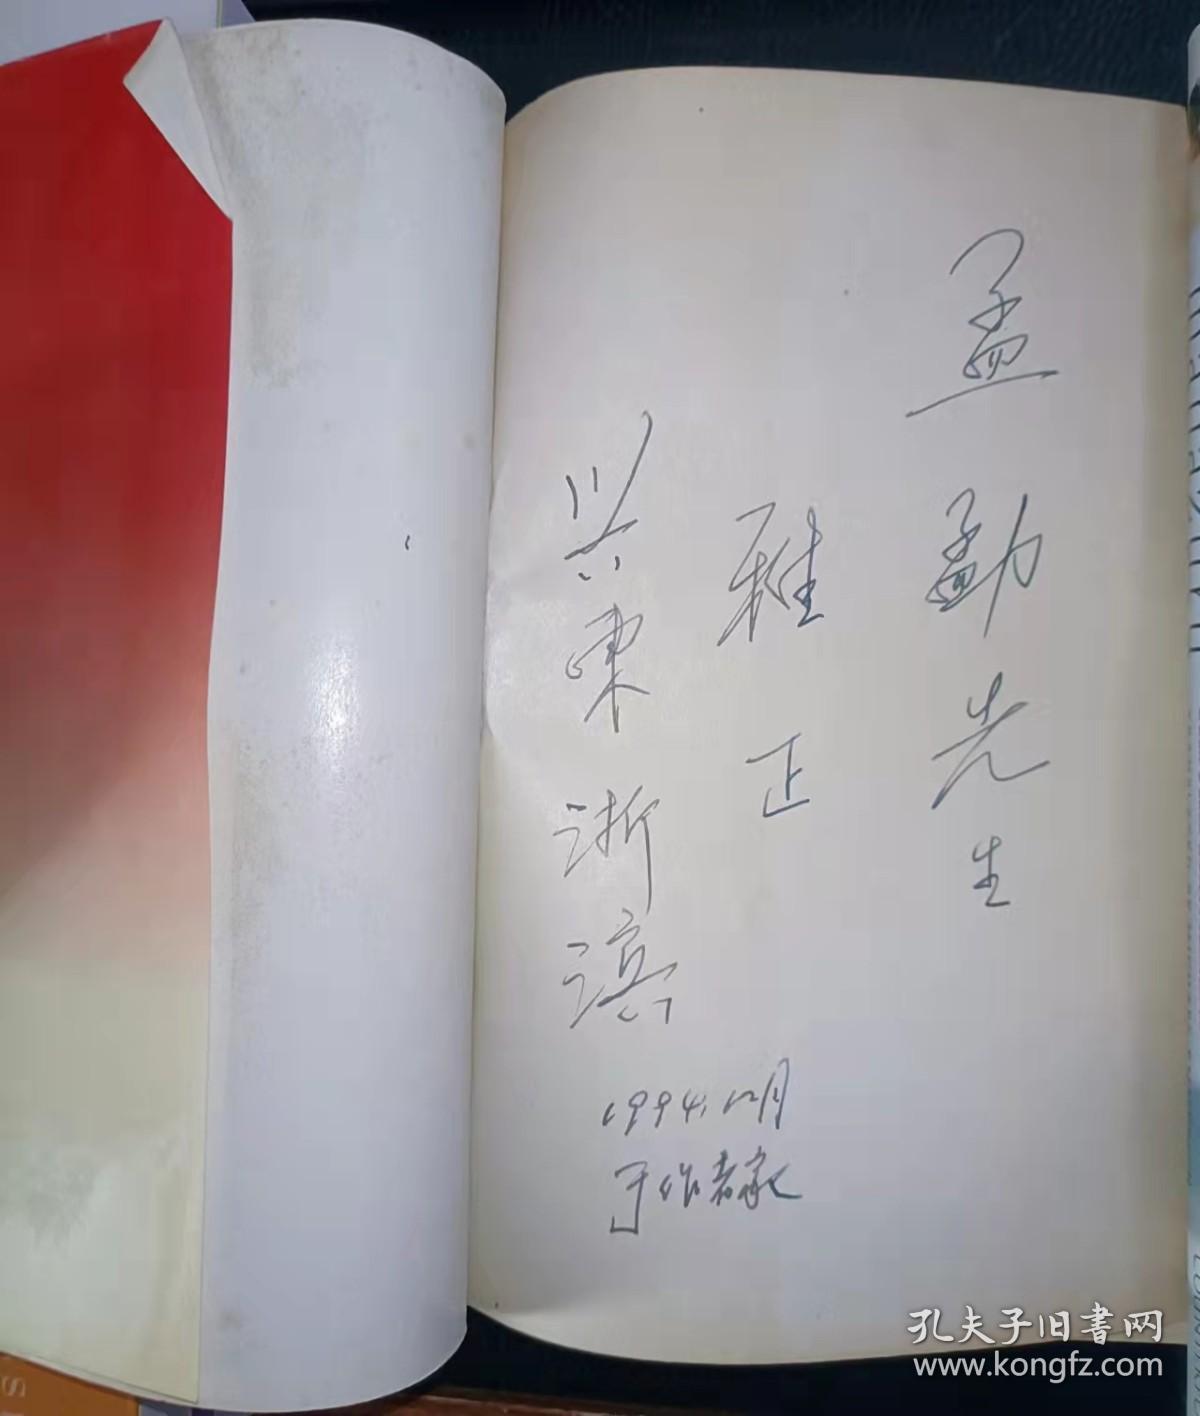 孟勐先生
雅正
兴东浙滨
1994.12月
于作者家
孔夫子旧书网
www.kongfz.com